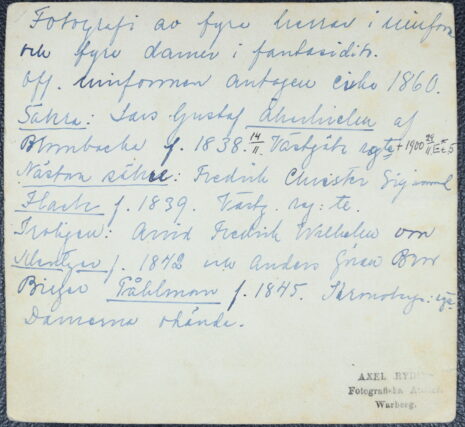 Fotografi av fyra herrar i uniform
och fyra damer i fantasidr.
Off. uniformen antagen cirka 1860.
Säkra: Lars Gustaf af
Blombacka f. 1838. 14/11. Västgöta rgte + 1900
Nästan säkra: Fredrik Christer Sigismund
f. 1839. Västg. reg:te.
Troligen: Arvid Fredrik Wilhelm von
f. 1842 och Anders Göran Bror
Birger Påhlman f. 1845. Kronobergs:
Damerna okända.
AXEL
Fotografiska
Warberg.